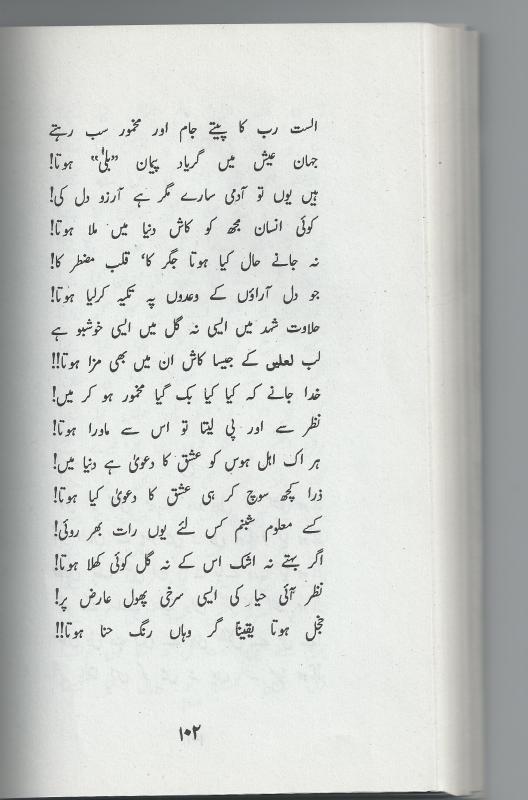 الست رب کا پیتے جام اور مخمور سب رہتے
جہان عیش میں گریاد پیمان ”بلیٰ“ ہوتا!
ہیں یوں تو آدمی سارے مگر ہے آرزو دل کی!
کوئی انسان مجھ کو کاش دنیا میں ملا ہوتا!
نہ جانے حال کیا ہوتا جگر کا‘ قلب مضطر کا!
جو دل آراؤں کے وعدوں پہ تکیہ کرلیا ہوتا!
حلاوت شہد میں ایسی نہ گل میں ایسی خوشبو ہے
لب لعلیں کے جیسا کاش ان میں بھی مزا ہوتا!!
خدا جانے کہ کیا کیا بک گیا مخمور ہو کر میں!
نظر سے اور پی لیتا تو اس سے ماورا ہوتا!
ہر اک اہل ہوس کو عشق کا دعویٰ ہے دنیا میں!
ذرا کچھ سوچ کر ہی عشق کا دعویٰ کیا ہوتا!
کسے معلوم شبنم کس لئے یوں رات بھر روئی!
اگر بہتے نہ اشک اس کے نہ گل کوئی کھلا ہوتا!
نظر آئی حیا کی ایسی سرخی پھول عارض پر!
خجل ہوتا یقیناً گر وہاں رنگ حنا ہوتا!!
۱۰۲